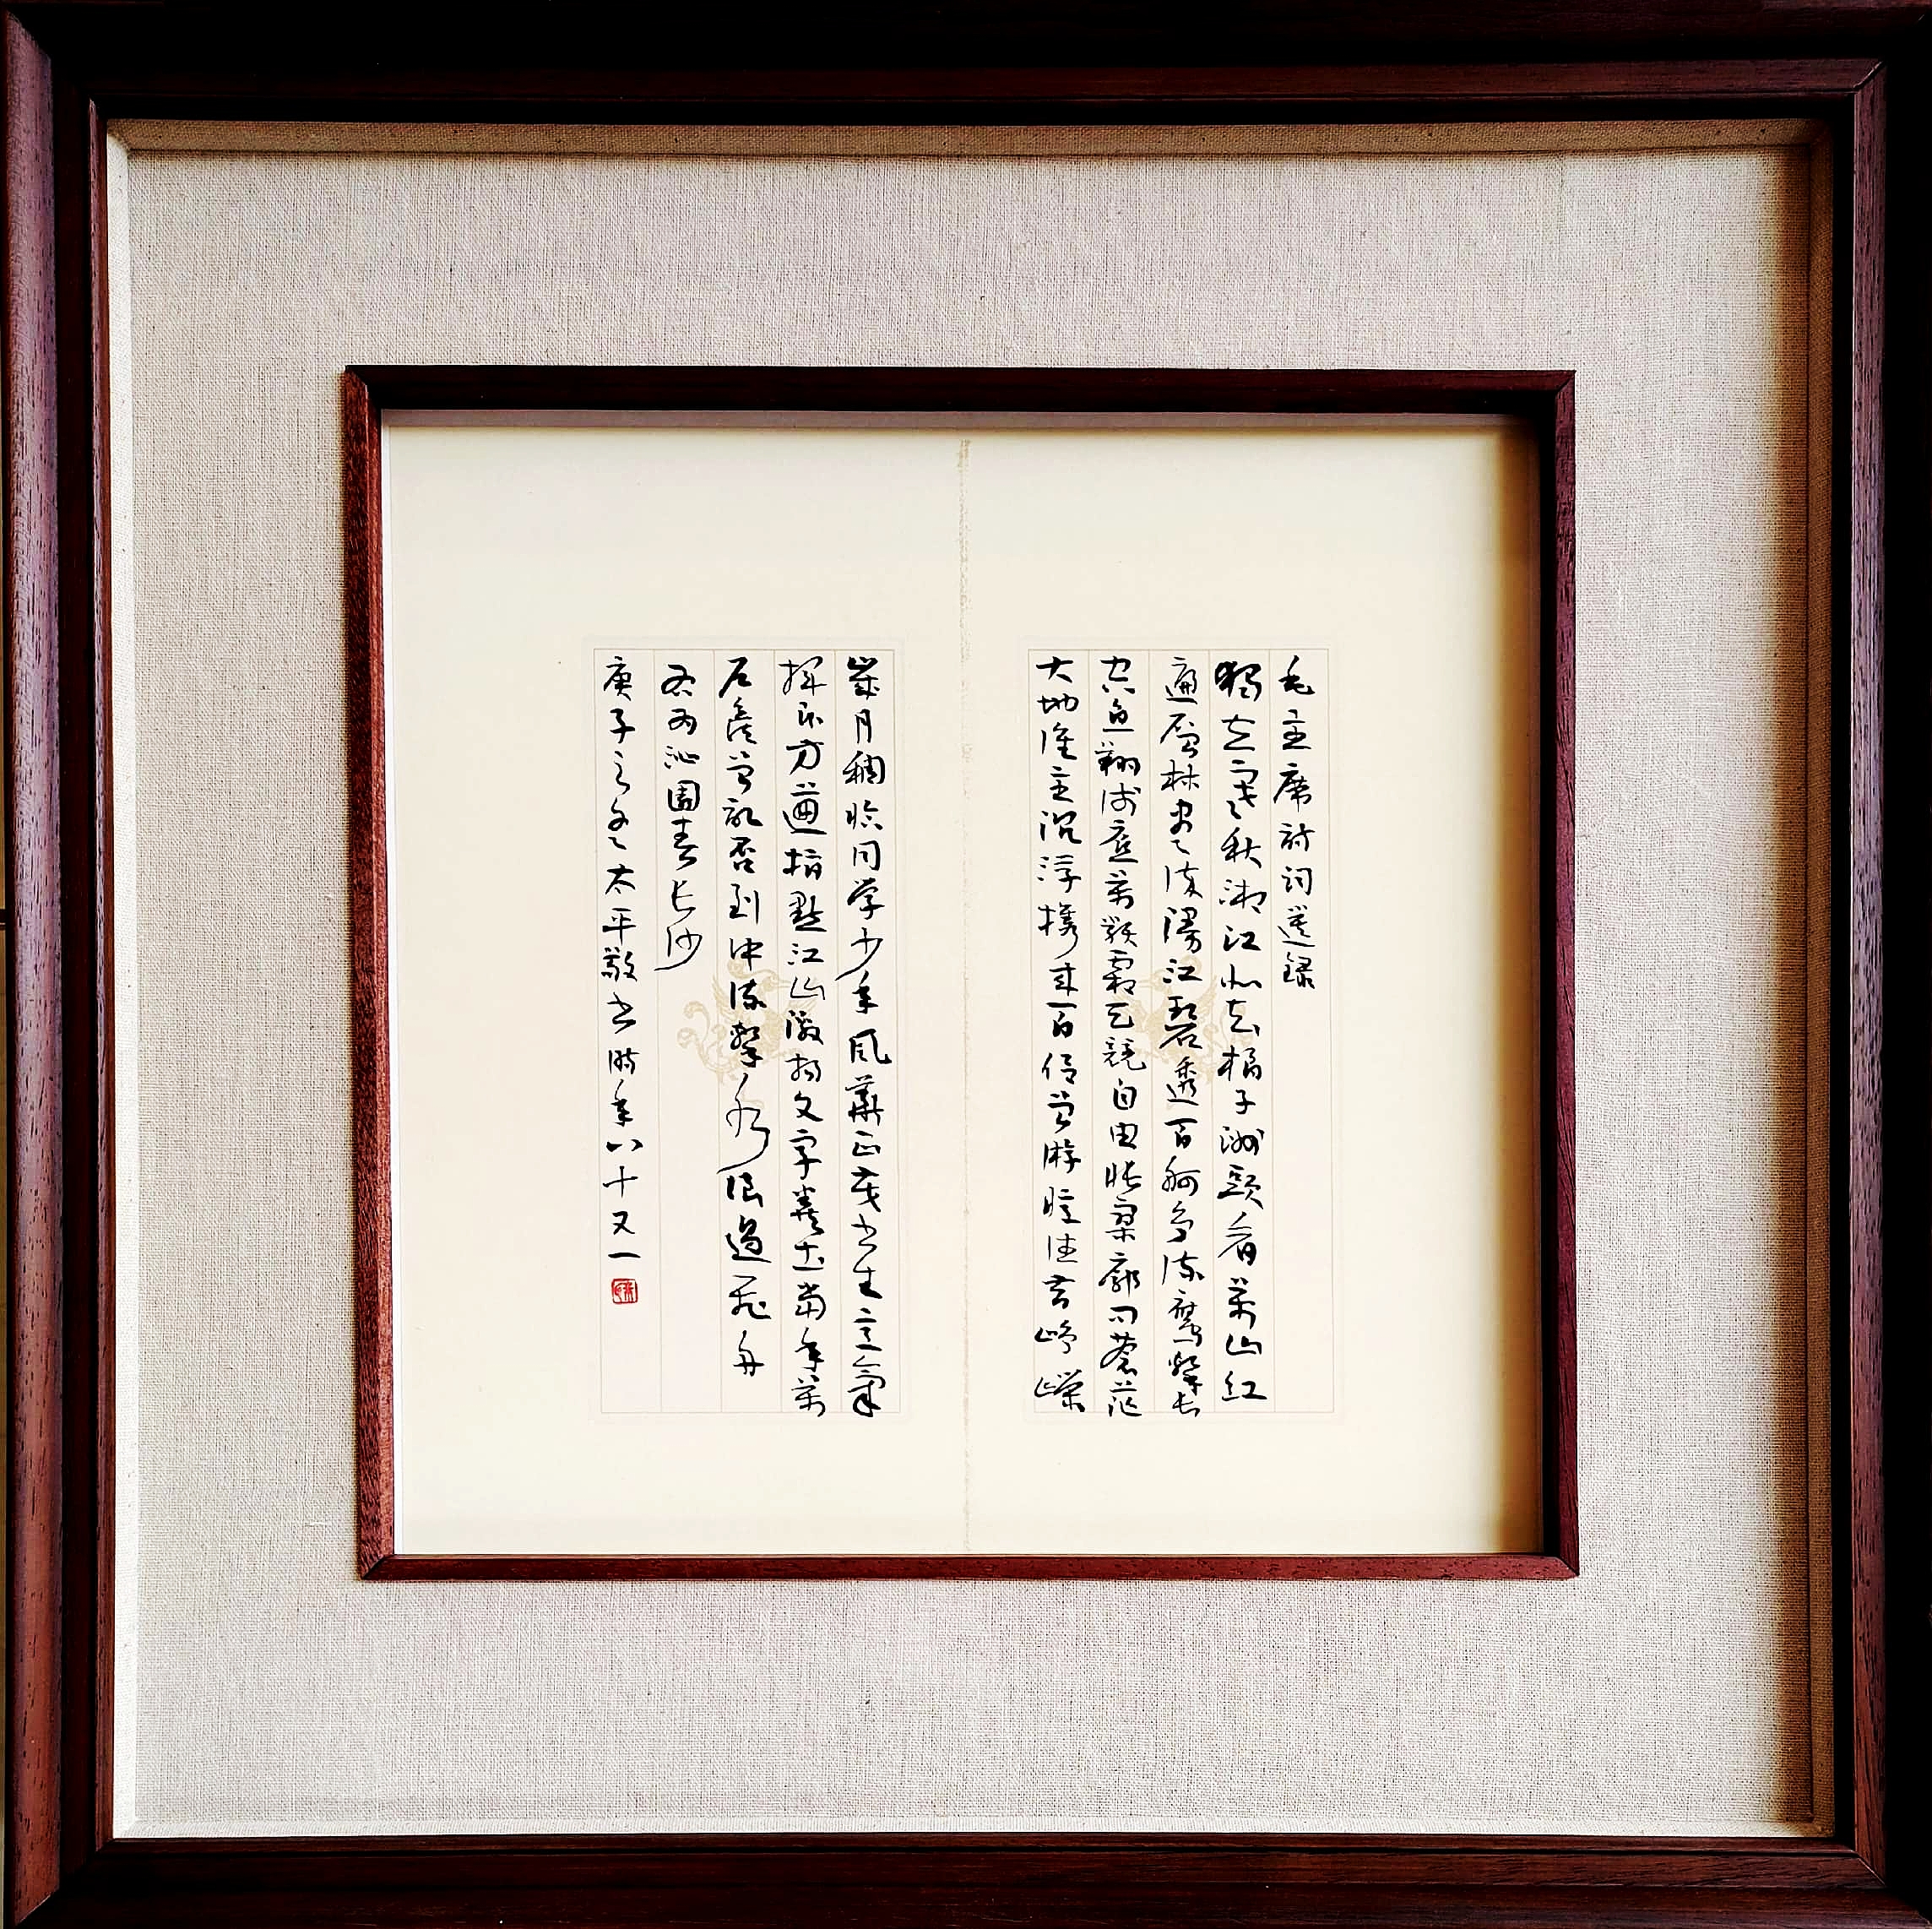 毛主席詩词選録
獨立寒秋湘江北去橘子洲頭看萬山紅
遍層林尽染漫江碧透百舸争流鹰擊長
空魚翔浅底萬類霜天競自由悵寥廓问蒼茫
大地谁主沉浮攜来百侣曾游憶往昔峥嵘
歲月稠恰同学少年風華正茂书生意氣
挥斥方遒指點江山激扬文字糞土當年萬
户侯曾記否到中流擊水浪遏飛舟
右为沁園春长沙
庚子之冬太平敬书时年八十又一